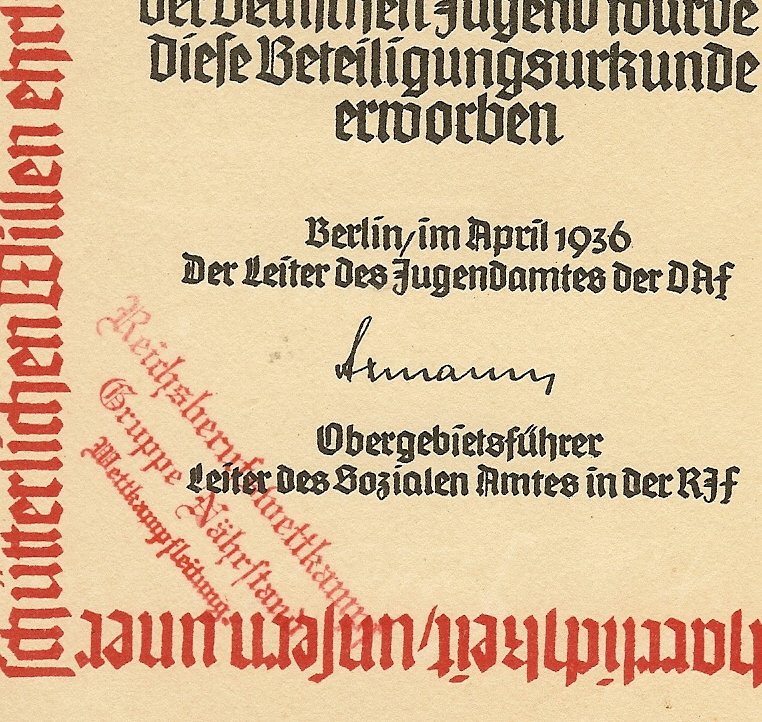 der Deutschen Jugend wurde
diese Beteiligungsurkunde
erworben
Berlin, im April 1936
Der Leiter des Jugendamtes der DAF
Axmann
Obergebietsführer
Leiter des Sozialen Amtes in der RJF
Reichsberufswettkampf
Gruppe Nährstand
Wettkampfleitung.
harrlichkeit, unsern uner
schütterlichen Willen ehrl